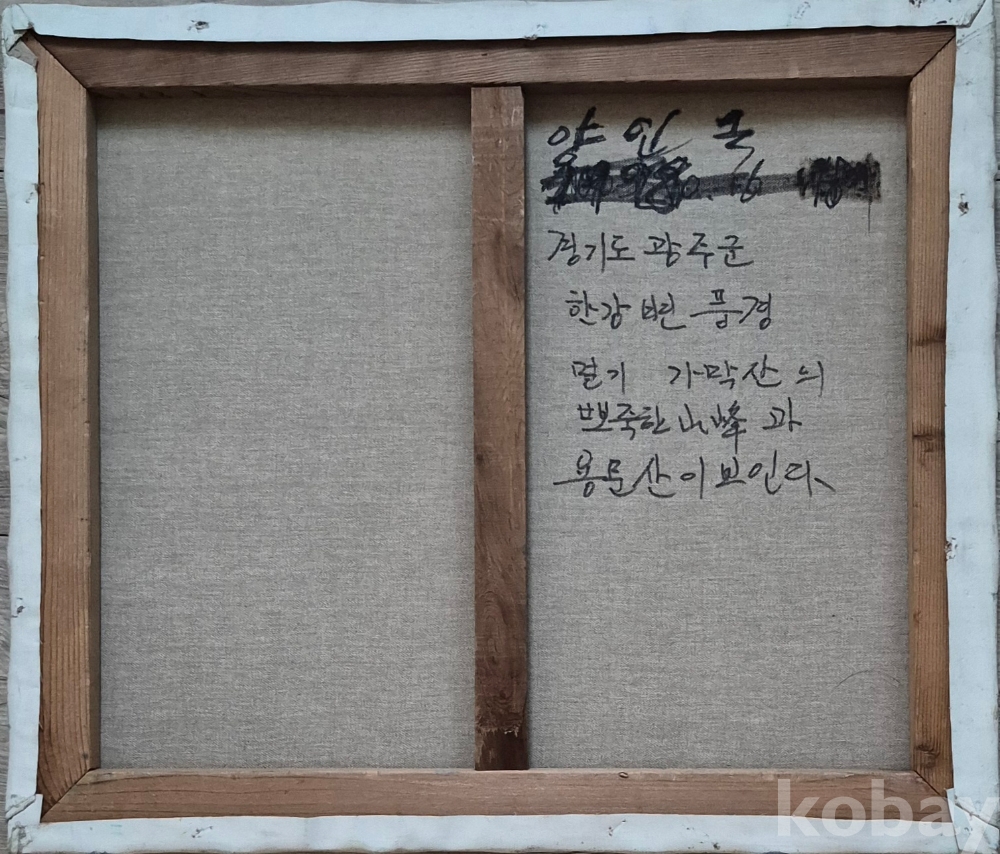 양 인 국
경기도 광주군
한강변 풍경
멀기 가막산의
뾰죽한 山峰과
용문산이 보인다.
kobay